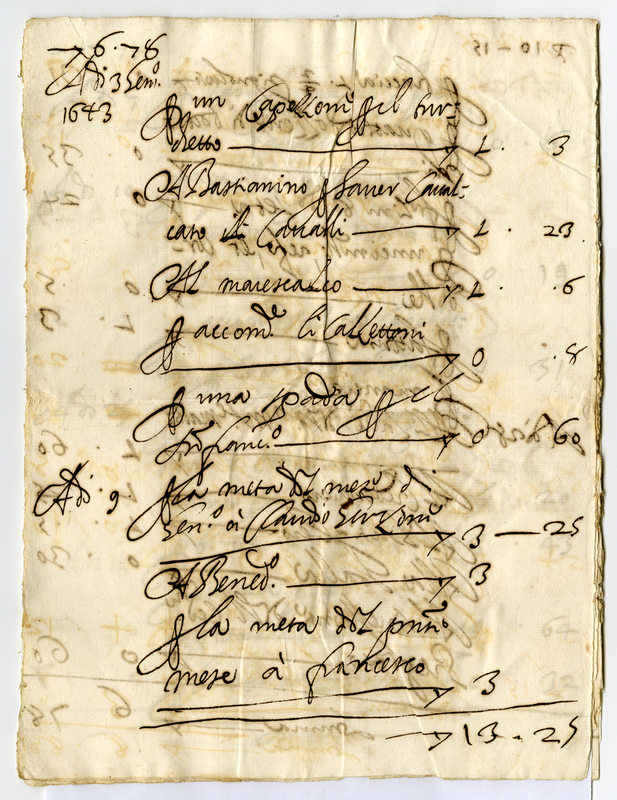 6 · 78
Adi 3 Gen.o
1643
P un Capellom P il Tur-
chetto L · 3
A Bastianino P haver Caval-
cato li Cavalli L · 23
Al marescalco L · 6
P accom.re li Calzettoni
0 · 8
P una spada P il
Sr franc.o 0 60
Adi 9 · P la meta del mese di
Gen.o à Claudio 3 — 25
A Bened.o 3
P la meta del primo
mese à francesco 3
13 · 25